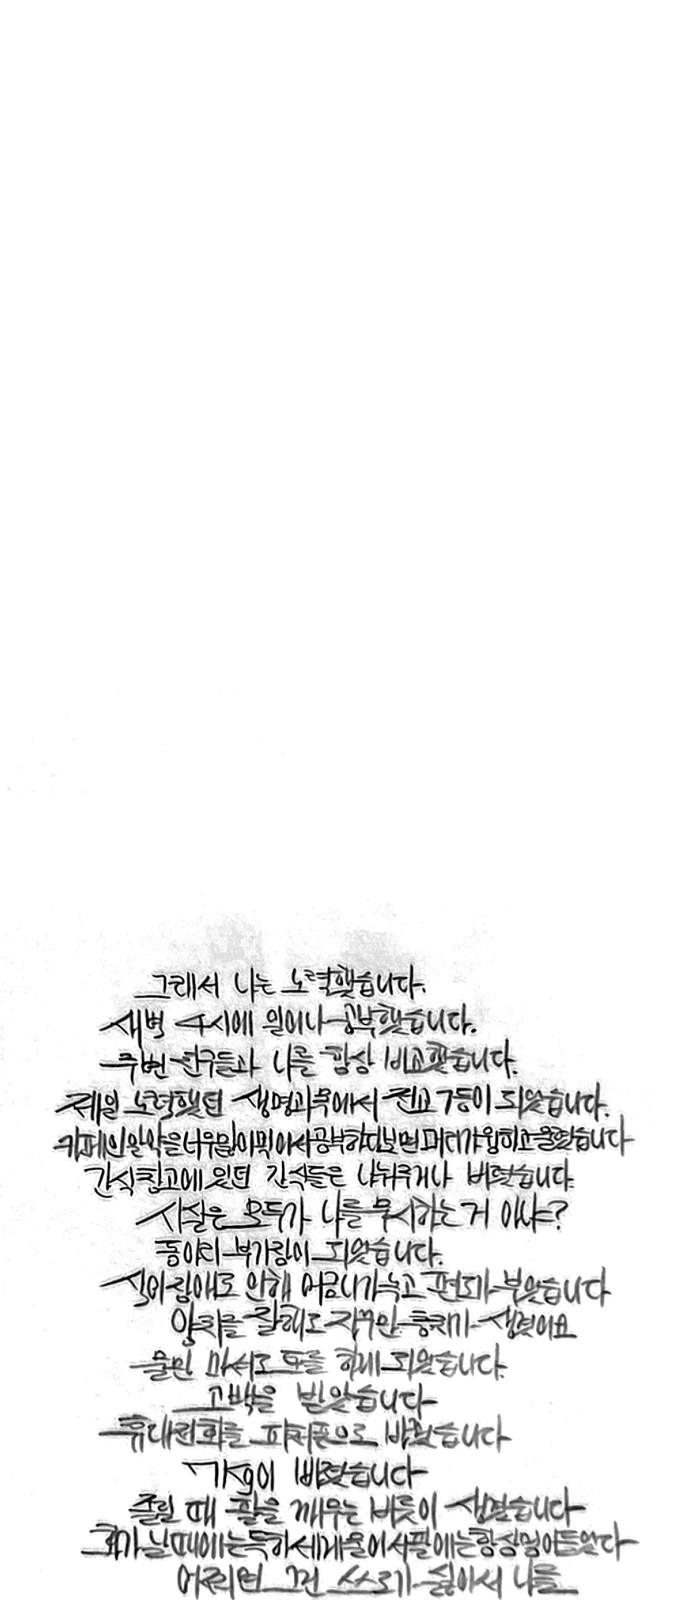 그래서 나는 노력했습니다.
새벽 4시에 일어나 공부했습니다.
주변 친구들과 나를 항상 비교했습니다.
제일 노력했던 생명과목에서 전교 7등이 되었습니다.
카페인 알약을 너무 많이 먹어서 공부하다 보면 머리가 윙 하고 울렸습니다
간식창고에 있던 간식들은 나눠주거나 버렸습니다
사실은 모두가 나를 무시하는 거 아냐?
동아리 부기장이 되었습니다.
식이장애로 인해 어금니가 녹고 편도가 부었습니다
양치를 잘해도 자꾸만 충치가 생겼어요
물만 마셔도 토를 하게 되었습니다.
고백을 받았습니다
휴대전화를 피처폰으로 바꿨습니다
7kg이 빠졌습니다
졸릴 때 팔을 깨무는 버릇이 생겼습니다
화가 날 때에는 특히 세게 물어서 팔에는 항상 멍이 들었다
어쩌면 그건 스스로가 싫어서 나를